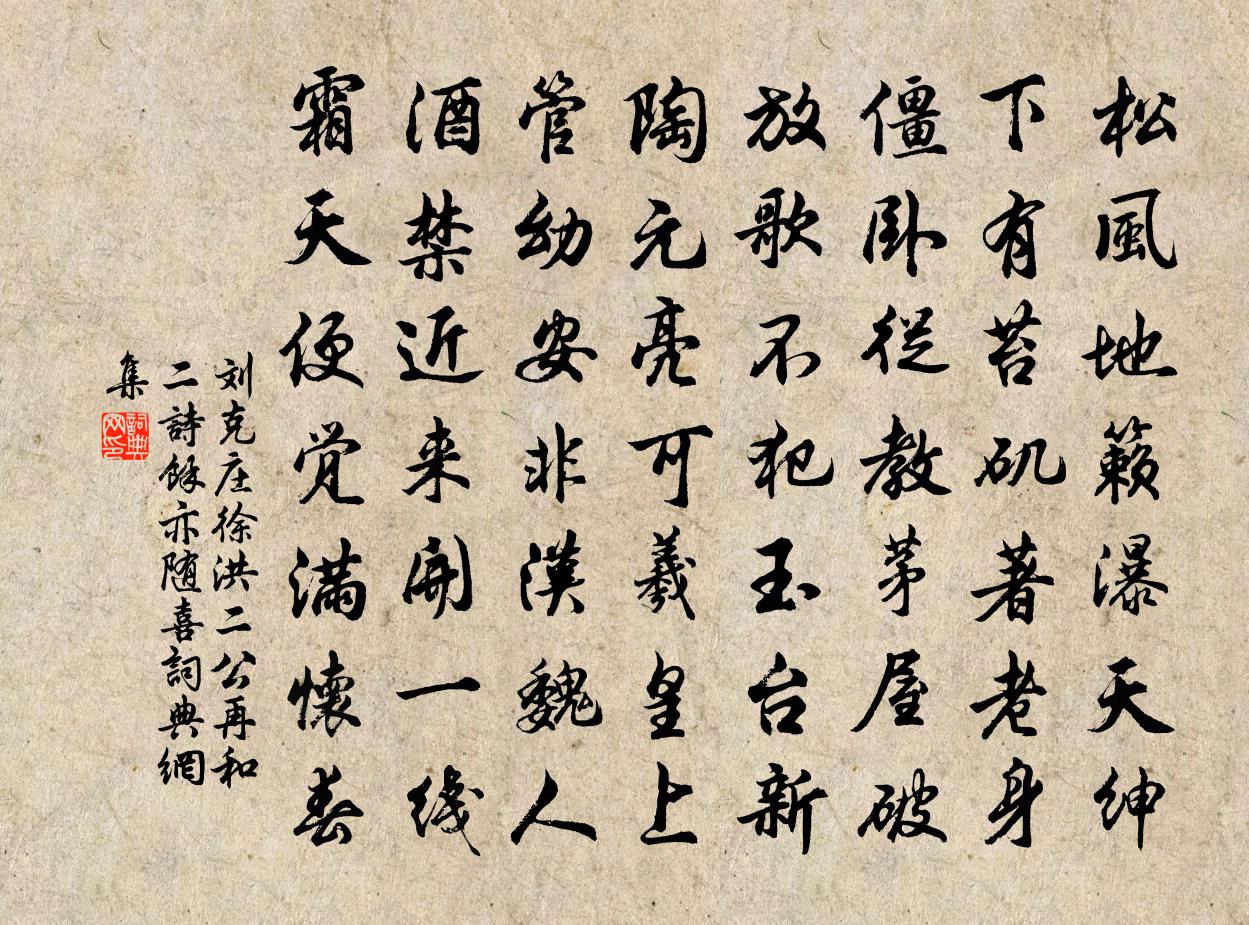 松風地籟瀑天紳
下有苔矶著老身
僵卧従教茅屋破
放歌不犯玉台新
陶元亮可羲皇上
管幼安非漢魏人
酒禁近来開一线
霜天便觉满懷春
刘克庄徐洪二公再和
二詩餘亦随喜詞典網
集
詞典网印